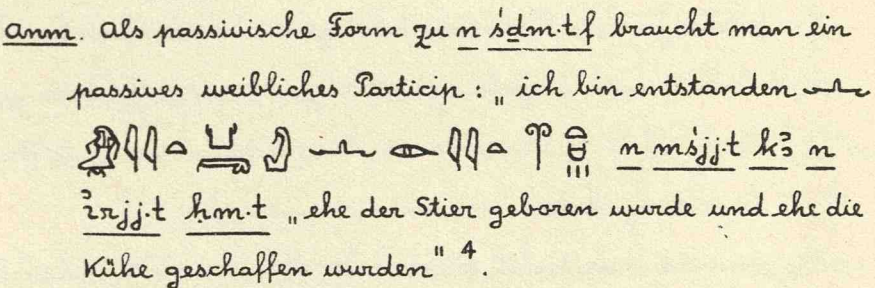 Anm. Als passivische Form zu n śḏm·tf braucht man ein
passives weibliches Particip: „ich bin entstanden 𓂜
𓁒𓇌𓏏 𓂜 𓇌𓏏 n mśjj·t kꜣ n
ꞽrjj·t ḥm·t „ehe der Stier geboren wurde und ehe die
Kühe geschaffen wurden" 4.